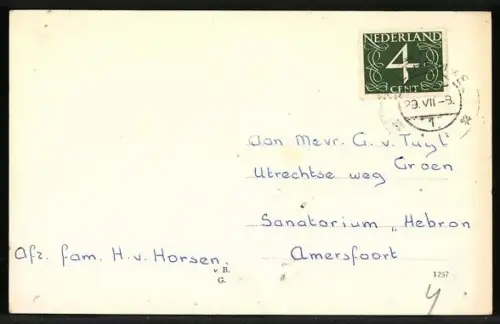 NEDERLAND
4
CENT
29.VII-8.
1
Aan Mevr. G. v. Tuyl
Groen
Utrechtse weg
Sanatorium „Hebron
Amersfoort
Afz. fam. H. v Horsen.
v. B.
G.
1257
y